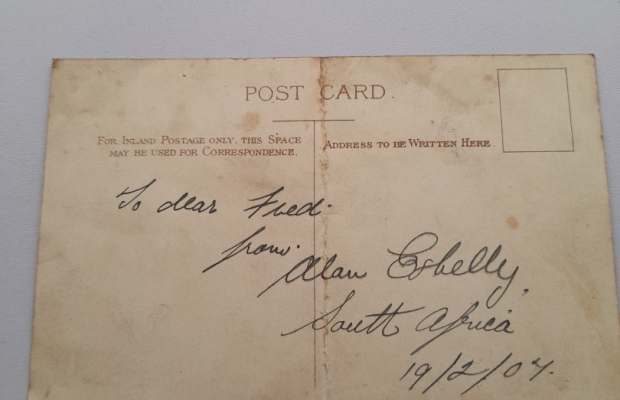 POST CARD.
FOR INLAND POSTAGE ONLY, THIS SPACE
MAY BE USED FOR CORRESPONDENCE.
ADDRESS TO BE WRITTEN HERE.
To dear Fred.
from.
Alan
South Africa
19/2/07.